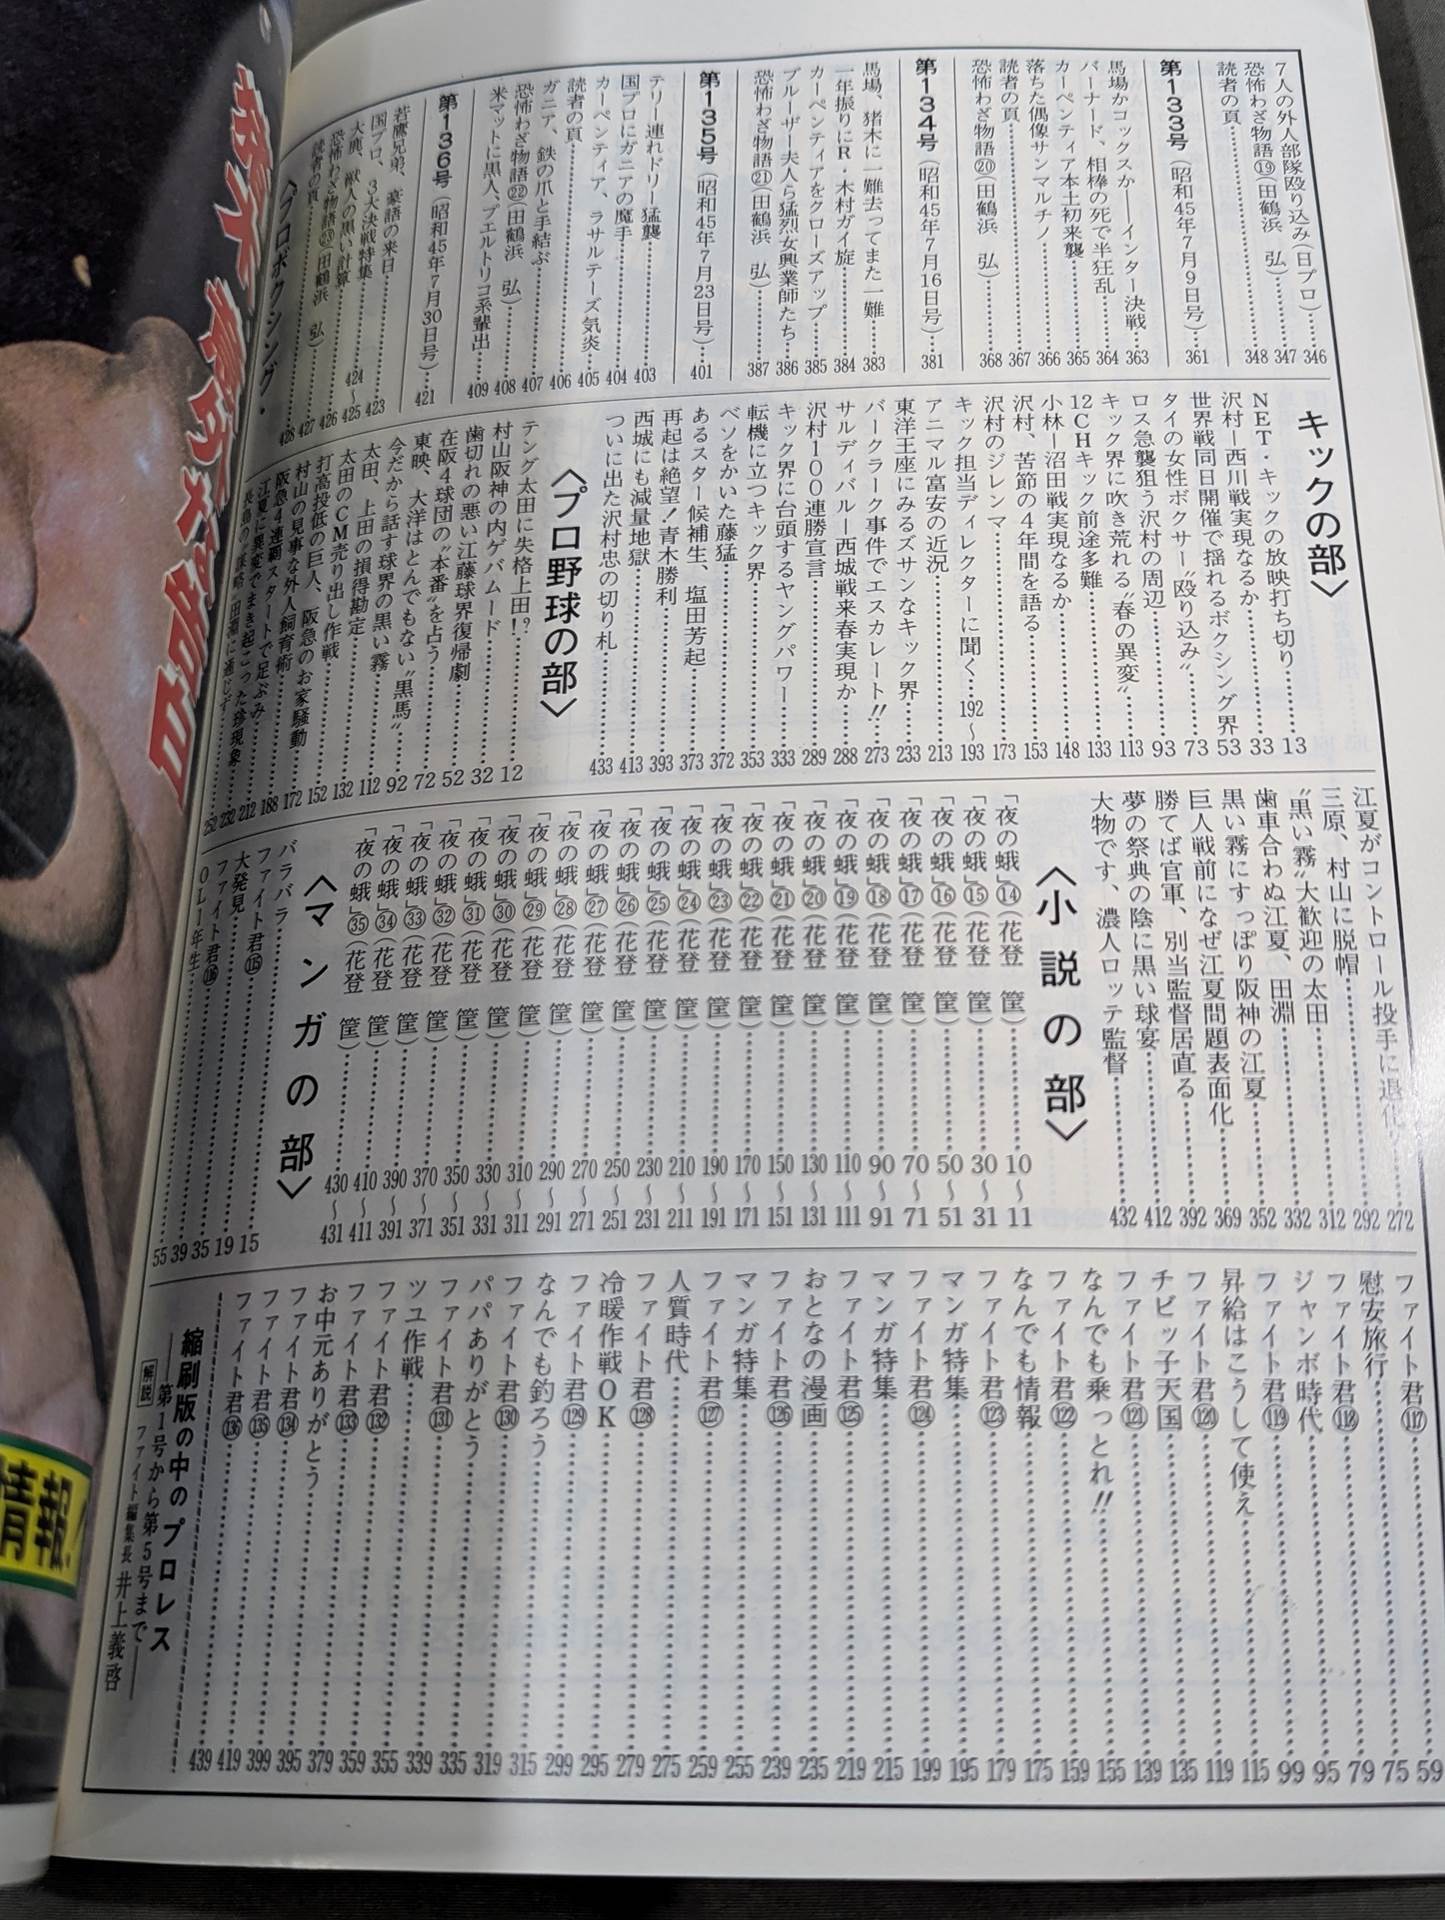 7人の外人部隊殴り込み(日プロ)……346
恐怖わざ物語⑲(田鶴浜 弘)……347
読者の頁……348
第133号(昭和45年7月9日号)…361
馬場かコックスか――インター決戦…363
バーナード、相棒の死で半狂乱……364
カーペンティア本土初来襲……365
落ちた偶像サンマルチノ……366
読者の頁……367
恐怖わざ物語⑳(田鶴浜 弘)……368
第134号(昭和45年7月16日号)…381
馬場、猪木に一難去ってまた一難……383
一年振りにR・木村ガイ旋……384
カーペンティアをクローズアップ……385
ブルーザー夫人ら猛烈女興業師たち…386
恐怖わざ物語㉑(田鶴浜 弘)……387
第135号(昭和45年7月23日号)…401
テリー連れドリー猛襲……403
国プロにガニアの魔手……404
カーペンティア、ラサルテーズ気炎…405
読者の頁……406
ガニア、鉄の爪と手結ぶ……407
恐怖わざ物語㉒(田鶴浜 弘)……408
米マットに黒人、プエルトリコ系輩出…409
第136号(昭和45年7月30日号)…421
若鷹兄弟、豪語の来日……423
国プロ、3大決戦特集……424〜425
大鹿、獣人の黒い計算……426
恐怖わざ物語㉓(田鶴浜 弘)……427
読者の頁……428
〈プロボクシング・
キックの部〉
NET・キックの放映打ち切り……13
沢村―西川戦実現なるか……33
世界戦同日開催で揺れるボクシング界…53
タイの女性ボクサー〝殴り込み〟……73
ロス急襲狙う沢村の周辺……93
キック界に吹き荒れる〝春の異変〟…113
12CHキック前途多難……133
小林―沼田戦実現なるか……148
沢村、苦節の4年間を語る……153
沢村のジレンマ……173
キック担当ディレクターに聞く…192〜193
アニマル富安の近況……213
東洋王座にみるズサンなキック界……233
バークラーク事件でエスカレート!!…273
サルディバル―西城戦来春実現か…288
沢村100連勝宣言……289
キック界に台頭するヤングパワー…333
転機に立つキック界……353
ベソをかいた藤猛……372
あるスター候補生、塩田芳起……373
再起は絶望!青木勝利……393
西城にも減量地獄……413
ついに出た沢村忠の切り札……433
〈プロ野球の部〉
テング太田に失格上田!?……12
村山阪神の内ゲバムード……32
歯切れの悪い江藤球界復帰劇……52
在阪4球団の〝本番〟を占う……72
東映、大洋はとんでもない〝黒馬〟…92
今だから話す球界の黒い霧……112
太田、上田の損得勘定……132
太田のCM売り出し作戦……152
打高投低の巨人、阪急のお家騒動……172
村山の見事な外人飼育術……188
阪急4連覇スタートで足ぶみ……212
江夏に異変でまき起こった珍現象…232
長島の〝謀略〟田淵に通じず……252
江夏がコントロール投手に退化……272
三原、村山に脱帽……292
〝黒い霧〟大歓迎の太田……312
歯車合わぬ江夏、田淵……332
黒い霧にすっぽり阪神の江夏……352
巨人戦前になぜ江夏問題表面化……369
勝てば官軍、別当監督居直る……392
夢の祭典の陰に黒い球宴……412
大物です、濃人ロッテ監督……432
〈小説の部〉
「夜の蛾」⑭(花登 筐)……10〜11
「夜の蛾」⑮(花登 筐)……30〜31
「夜の蛾」⑯(花登 筐)……50〜51
「夜の蛾」⑰(花登 筐)……70〜71
「夜の蛾」⑱(花登 筐)……90〜91
「夜の蛾」⑲(花登 筐)……110〜111
「夜の蛾」⑳(花登 筐)……130〜131
「夜の蛾」㉑(花登 筐)……150〜151
「夜の蛾」㉒(花登 筐)……170〜171
「夜の蛾」㉓(花登 筐)……190〜191
「夜の蛾」㉔(花登 筐)……210〜211
「夜の蛾」㉕(花登 筐)……230〜231
「夜の蛾」㉖(花登 筐)……250〜251
「夜の蛾」㉗(花登 筐)……270〜271
「夜の蛾」㉘(花登 筐)……290〜291
「夜の蛾」㉙(花登 筐)……310〜311
「夜の蛾」㉚(花登 筐)……330〜331
「夜の蛾」㉛(花登 筐)……350〜351
「夜の蛾」㉜(花登 筐)……370〜371
「夜の蛾」㉝(花登 筐)……390〜391
「夜の蛾」㉞(花登 筐)……410〜411
「夜の蛾」㉟(花登 筐)……430〜431
〈マンガの部〉
バラバラ……15
ファイト君⑮……19
大発見……35
ファイト君⑯……39
OL1年生……55
ファイト君⑰……59
慰安旅行……75
ファイト君⑱……79
ジャンボ時代……95
ファイト君⑲……99
昇給はこうして使え……115
ファイト君⑳……119
チビッ子天国……135
ファイト君㉑……139
なんでも乗っとれ!!……155
ファイト君㉒……159
なんでも情報……175
ファイト君㉓……179
マンガ特集……195
ファイト君㉔……199
マンガ特集……215
ファイト君㉕……219
おとなの漫画……235
ファイト君㉖……239
マンガ特集……255
ファイト君㉗……259
人質時代……275
ファイト君㉘……279
冷暖作戦OK……295
ファイト君㉙……299
なんでも釣ろう……315
ファイト君㉚……319
パパありがとう……335
ファイト君㉛……339
ツユ作戦……355
ファイト君㉜……359
ファイト君㉝……379
お中元ありがとう……395
ファイト君㉞……399
ファイト君㉟……419
ファイト君㊱……439
縮刷版の中のプロレス
――第1号から第5号まで――
解説 ファイト編集長 井上義啓
情報!